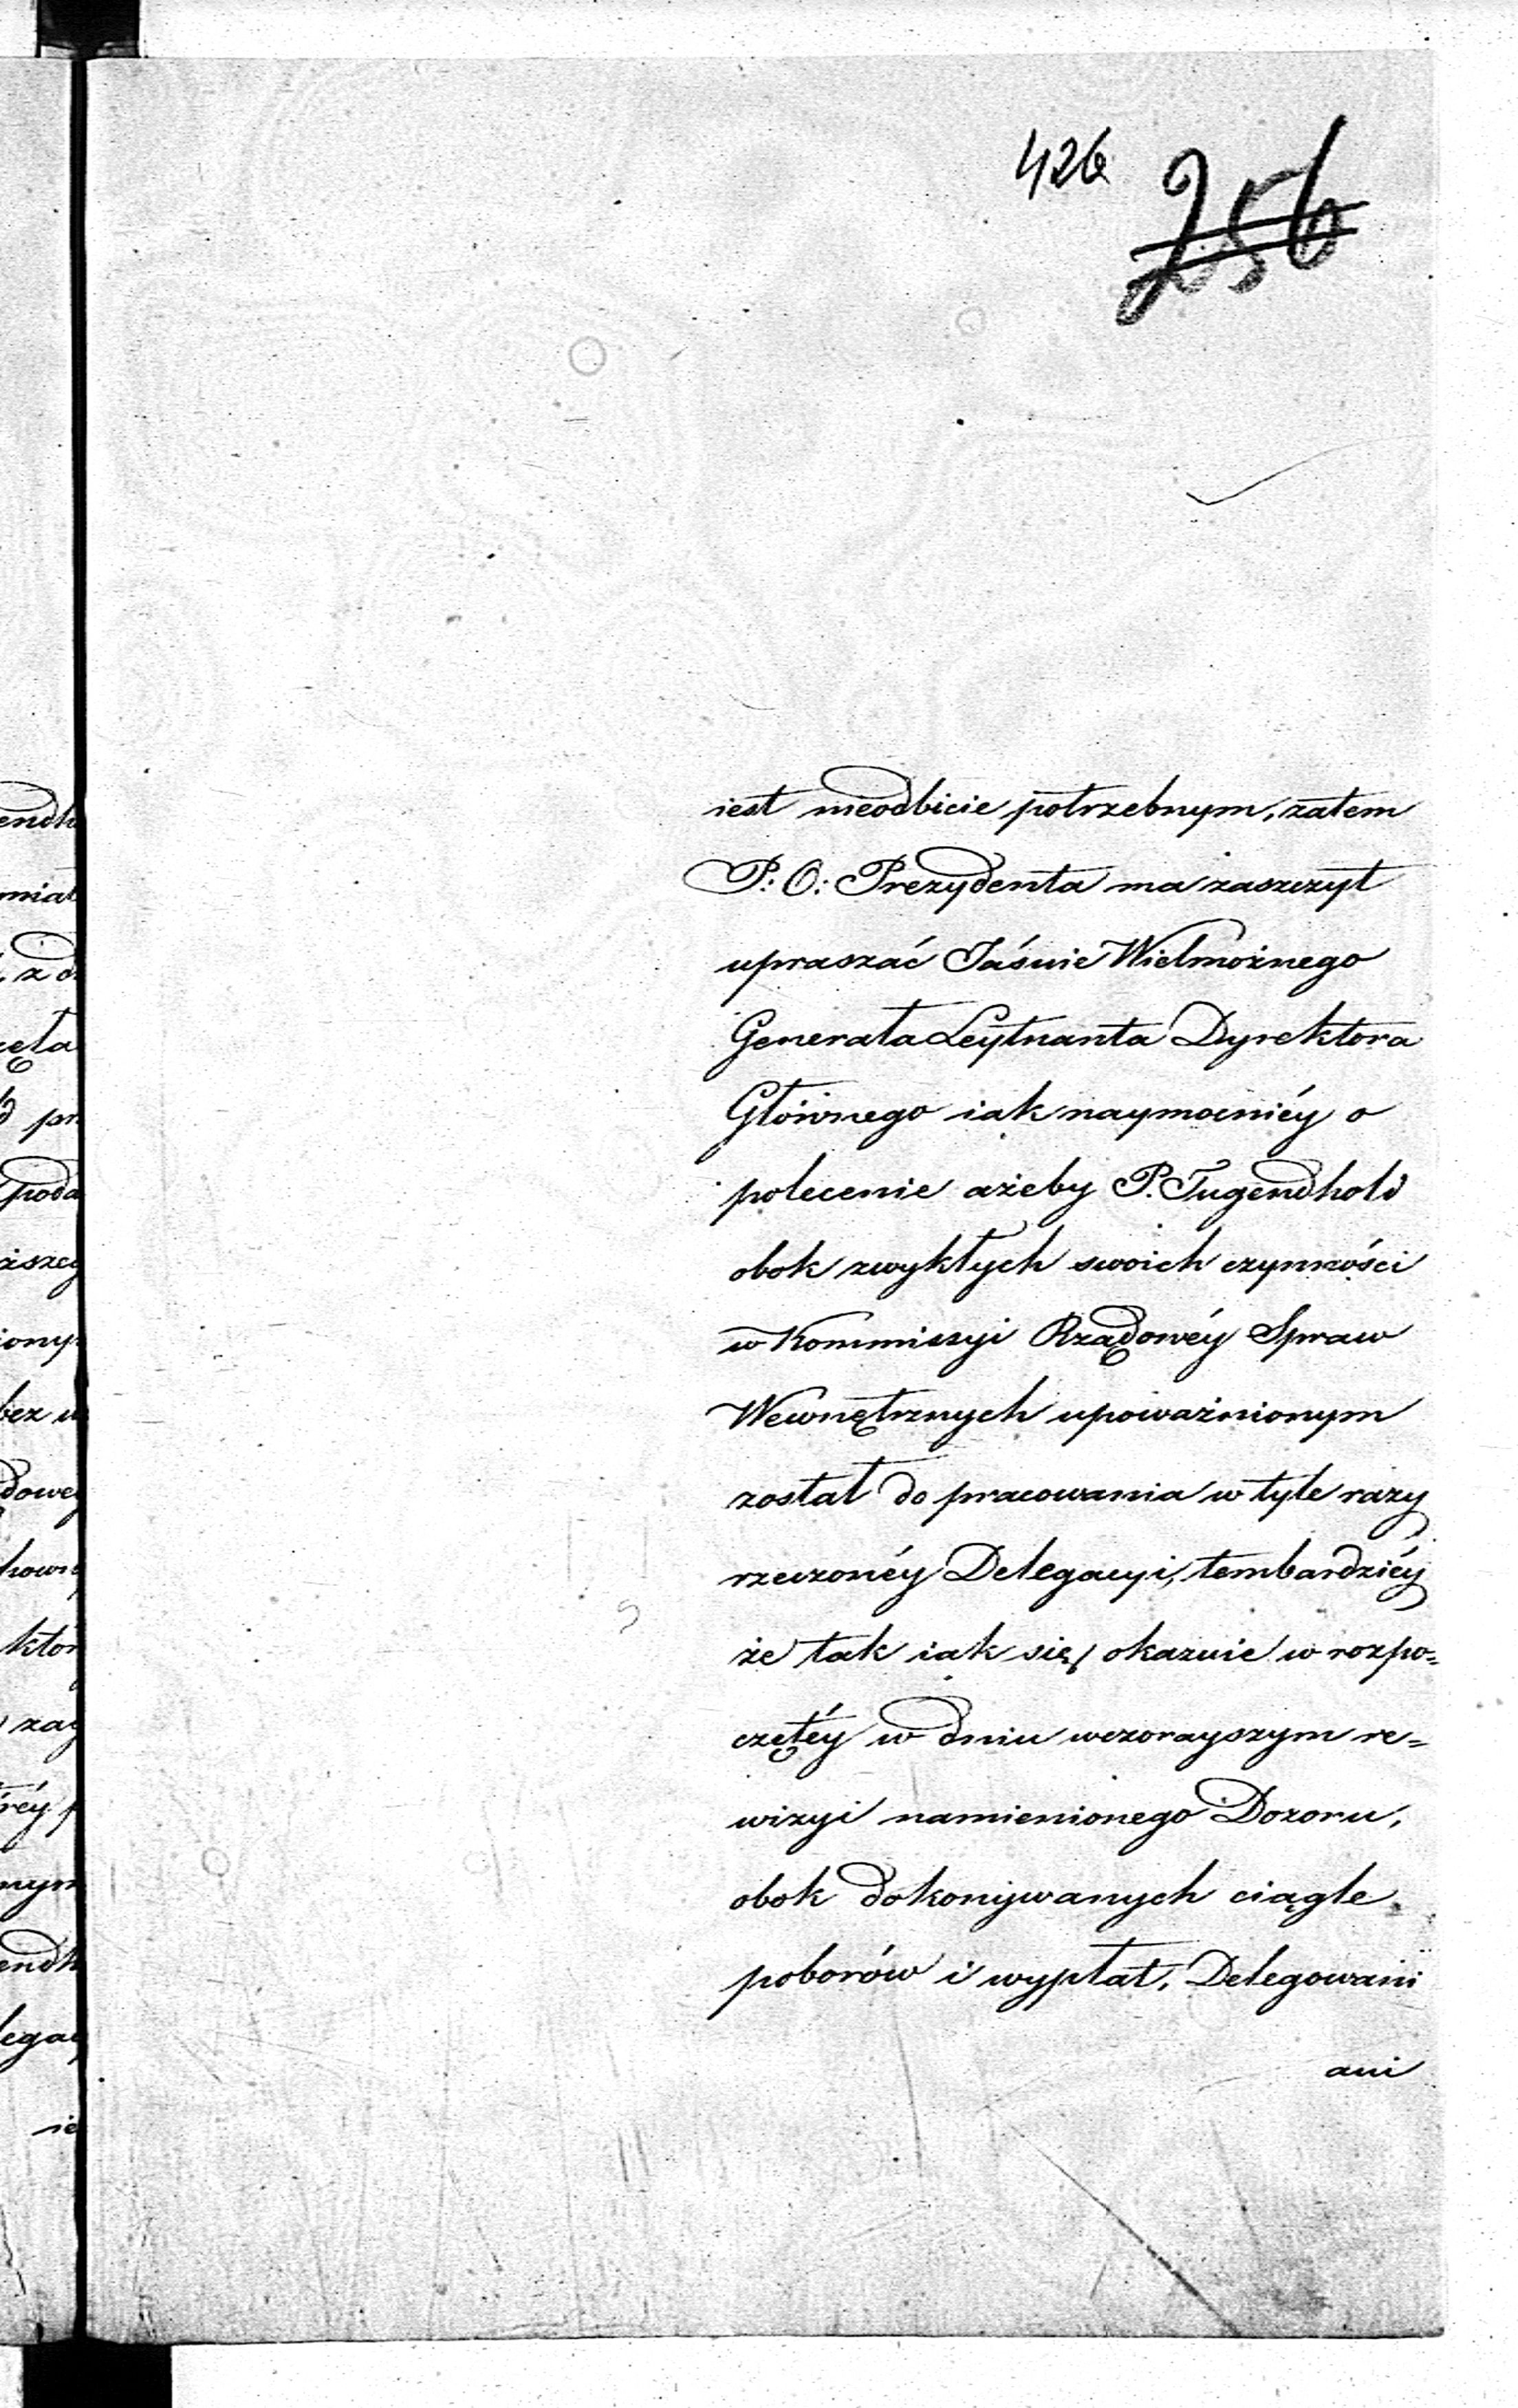 426
256
iest nieodbicie potrzebnym, zatem
P: O: Prezydenta ma zaszczyt
upraszać Jaśnie Wielmożnego
Generała Leytnanta Dyrektora
Głównego iak naymocniéy o
polecenie ażeby P. Tugendhold
obok zwykłych swoich czynności
w Kommissyi Rządowéy Spraw
Wewnętrznych upoważnionym
został do pracowania w tyle razy
rzeczonéy Delegacyi, tembardziéy
że tak iak się okazuie w rozpo=
czętéy w dniu wczorayszym re=
wizyi namienionego Dozoru,
obok dokonywanych ciągle
poborów i wypłat, Delegowani
ani